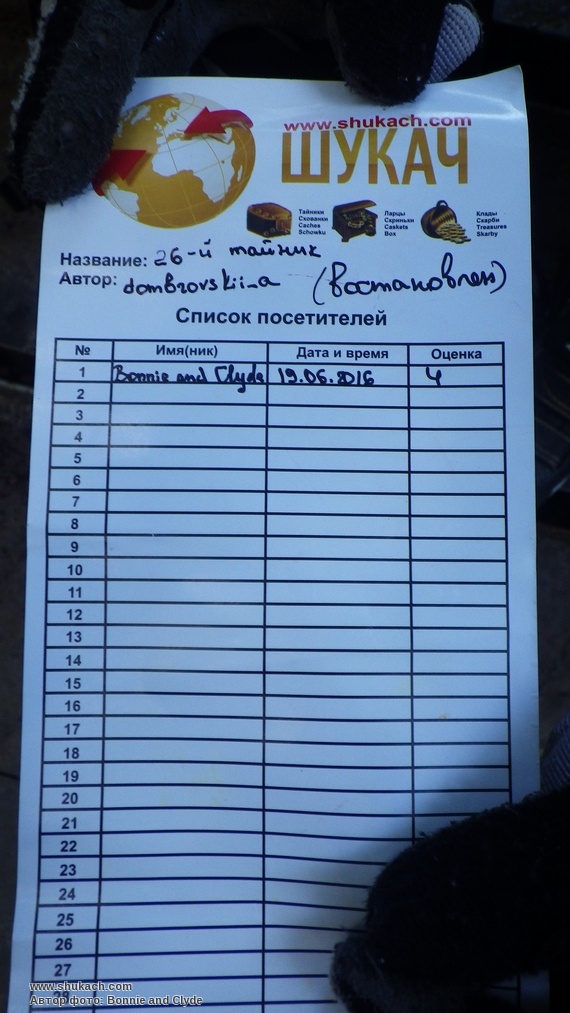 www.shukach.com
ШУКАЧ
Тайники
Схованки
Caches
Schowku
Ларцы
Скриньки
Caskets
Box
Клады
Скарби
Treasures
Skarby
Название: 26-й тайник
Автор: dombrovskii_a (востановлен)
Список посетителей
№ Имя(ник) Дата и время Оценка
1 Bonnie and Clyde 19.06.2016 4
2
3
4
5
6
7
8
9
10
11
12
13
14
15
16
17
18
19
20
21
22
23
24
25
26
27
28
www.shukach.com
Автор фото: Bonnie and Clyde